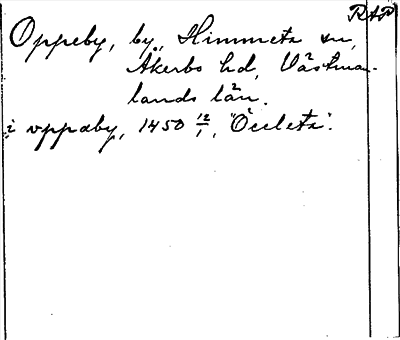 RAP
Oppeby, by, Himmeta sn,
Åkerbo hd, Västman-
lands län.
i vppaby, 1450 12/1, "Öcleta".